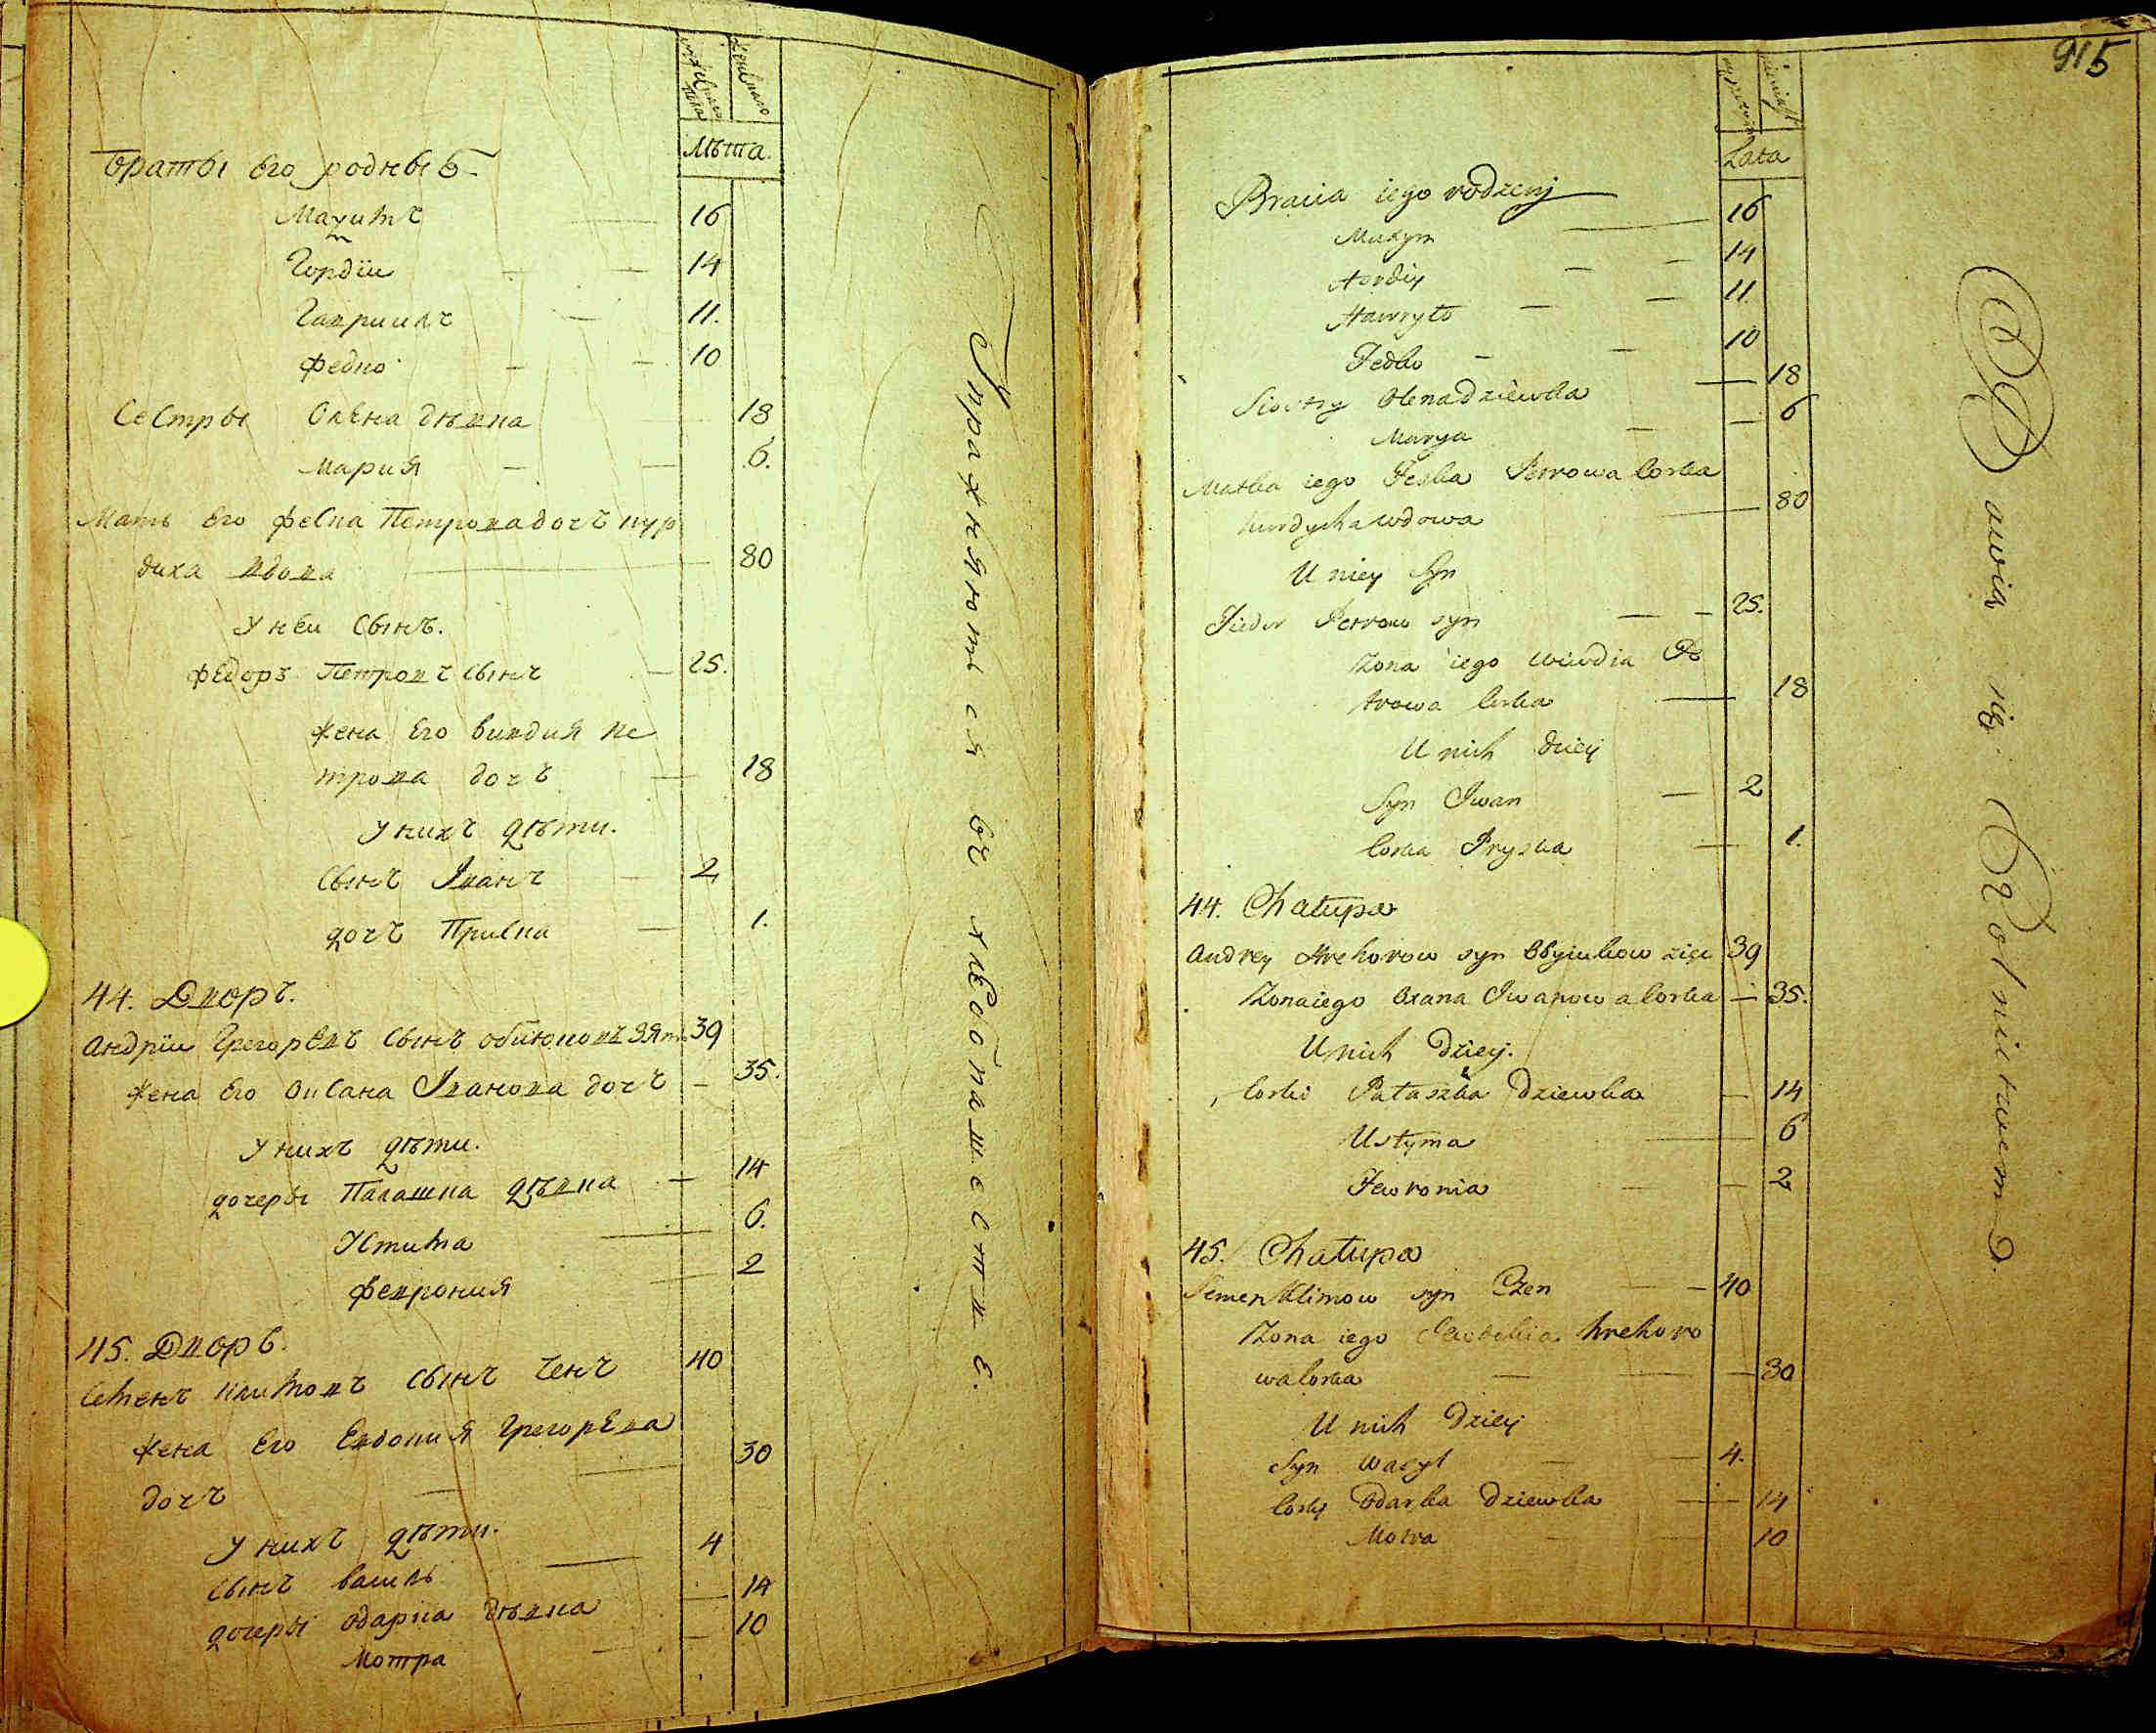 мужеска пола
женскаго
Лѣта.
Браты его родныѣ
Махимъ 16
Гордіи 14
Гавриилъ 11.
Федко 10
Сестры Олена дѣвка 18
Мария 6.
Мать его Феска Петрова дочъ кур
диха вдова 80
У неи сынъ.
Федоръ Петровъ сынъ 25.
жена его Вивдия Пе
трова дочъ 18
У нихъ дѣти.
сынъ Іванъ 2
дочъ Приска 1.
44. Дворъ.
Андріи Грегорѣвъ сынъ обиюковъ зят. 39
жена его Оксана Іванова дочъ 35.
У нихъ дѣти.
дочеры Палашка дѣвка 14
Устима 6.
Феврония 2
45. Дворъ.
Семенъ Климовъ сынъ Ченъ 40
жена его Евдокия Грегорѣва
дочъ 30
У нихъ дѣти.
сынъ Василь 4
дочеры Одарка дѣвка 14
Мотра 10
Упражняются въ хлѣбопашествѣ.
915
Lata
Bracia iego rodzeni
Maxym 16
Hordiy 14
Hawryło 11
Fedko 10
Siostry Olena dziewka 18
Marya 6
Matka iego Feska Petrowa corka
kurdycha wdowa 80
U niey Syn
Fiedor Petrow syn 25.
Zona iego Wiwdia Pe
trowa corka 18
U nich dzieci
Syn Iwan 2
Corka Pryska 1.
44. Chałupa
Andrey Hrehorow syn Obyiukow zięc 39
Zona iego Oxana Iwanowa corka 35.
U nich dzieci.
Corki Pałaszka dziewka 14
Ustyma 6
Fewronia 2
45. Chałupa
Semen Klimow syn Czen 40
Zona iego Hrehoro
wa corka 30
U nich dzieci
Syn Wasyl 4.
Corki Odarka dziewka 14
Motra 10
Bawią się Rolnictwem.